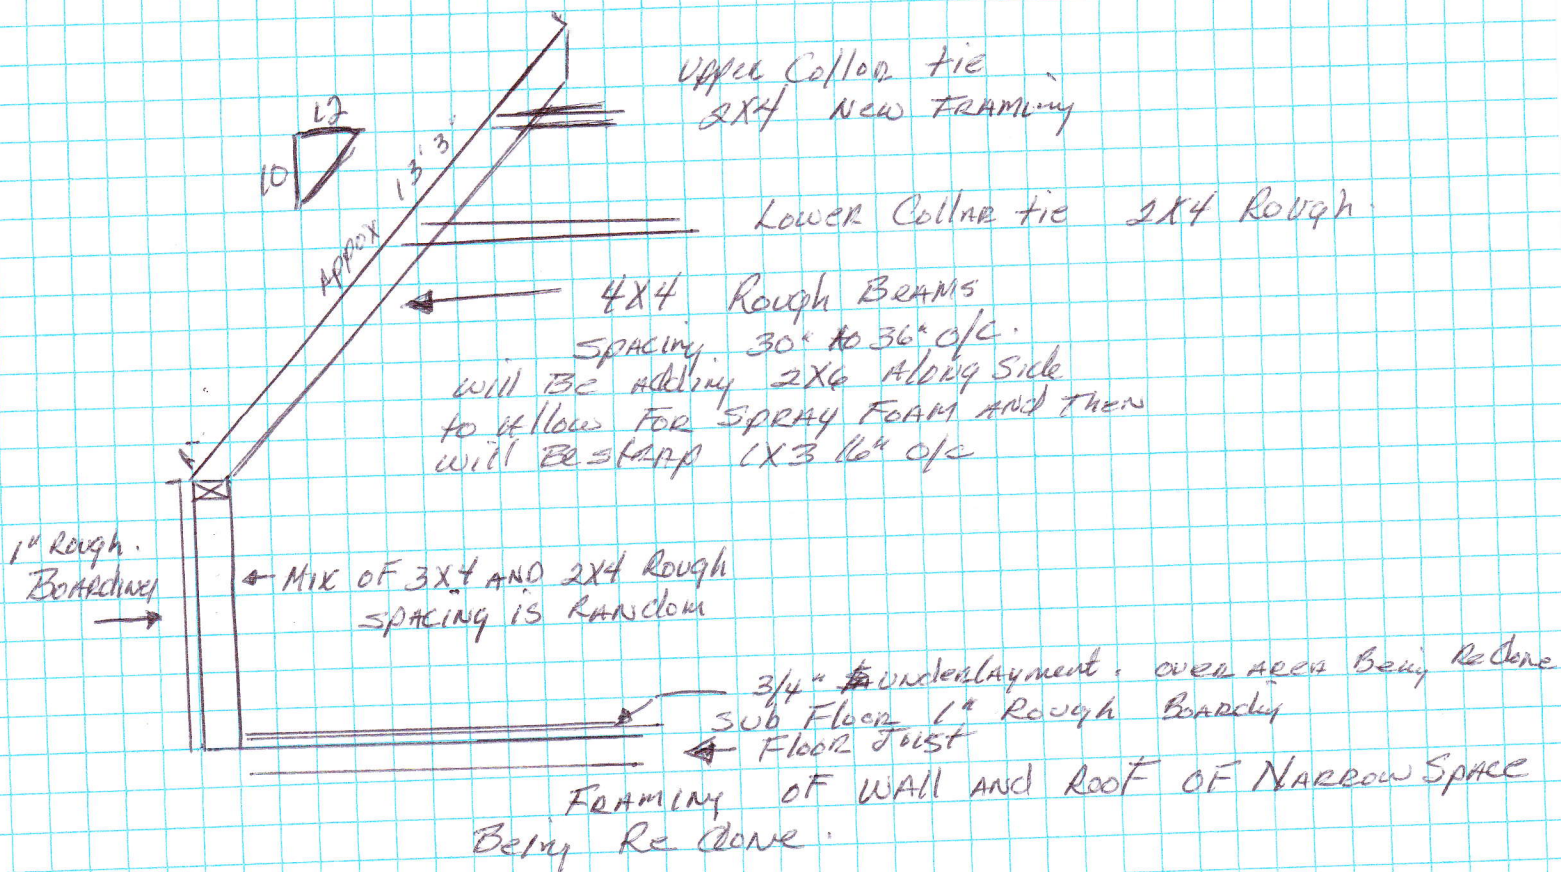 Upper Collar tie
2X4 New FRAMING
12
10
Appox 13' 3"
Lower Collar tie 2X4 Rough.
4X4 Rough BEAMS
SPACING 30" to 36" O/C.
will Be Adding 2X6 Along Side
to Allow FOR SPRAY FOAM AND THEN
will Be strap 1X3 16" O/C
1" Rough.
BOARDING
MIX OF 3X4 AND 2X4 Rough
SPACING is RANdom
3/4" underlayment. over AREA Being Redone
Sub Floor 1" Rough Boarding
Floor Joist
FRAMING OF WAll AND ROOF OF NARROW SPACE
Being Re done.